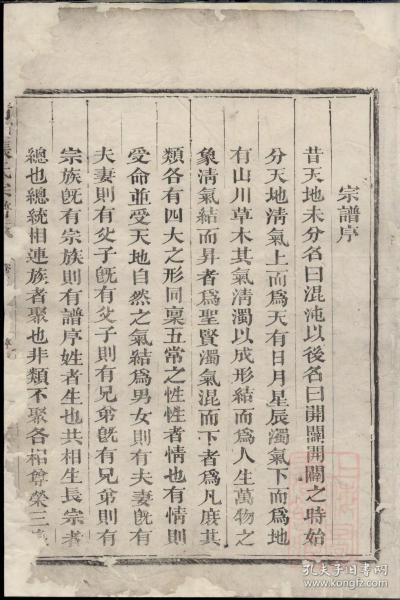 宗譜序
昔天地未分名曰混沌以後名曰開闢開闢之時始
分天地清氣上而爲天有日月星辰濁氣下而爲地
有山川草木其氣清濁以成形結而爲人生萬物之
象清氣結而昇者爲聖賢濁氣混而下者爲凡庻其
類各有四大之形同稟五常之性性者情也有情則
受命並受天地自然之氣結爲男女則有夫妻旣有
夫妻則有父子旣有父子則有兄弟旣有兄弟則有
宗族旣有宗族則有譜序姓者生也共相生長宗者
總也總統相連族者聚也非類不聚各相尊榮三
張氏宗譜
孔夫子旧书网
www.kongfz.com